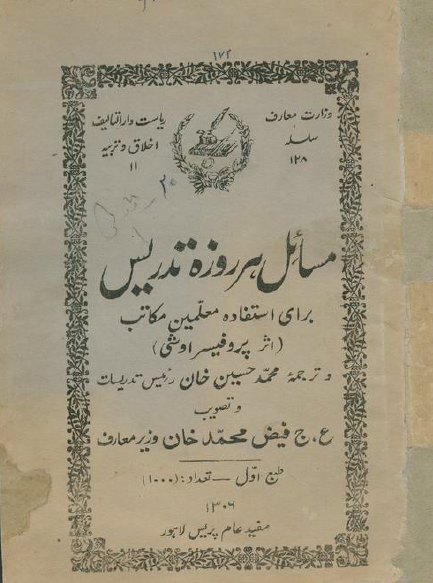 ۱۷۲
وزارت معارف
سلسله
۱۲۸
ریاست دارالتالیف
اخلاق و تربیه
۱۱
۲۰
مسائل هر روزهٔ تدریس
برای استفاده معلمین مکاتب
(اثر پروفیسر اوشی)
و ترجمهٔ محمّد حسین خان رئیس تدریسات
و تصویب
ع . ج فیض محمّد خان وزیر معارف
طبع اوّل — تعداد : (۱۰۰۰)
۱۳۰۶
مفید عام پریس لاہور